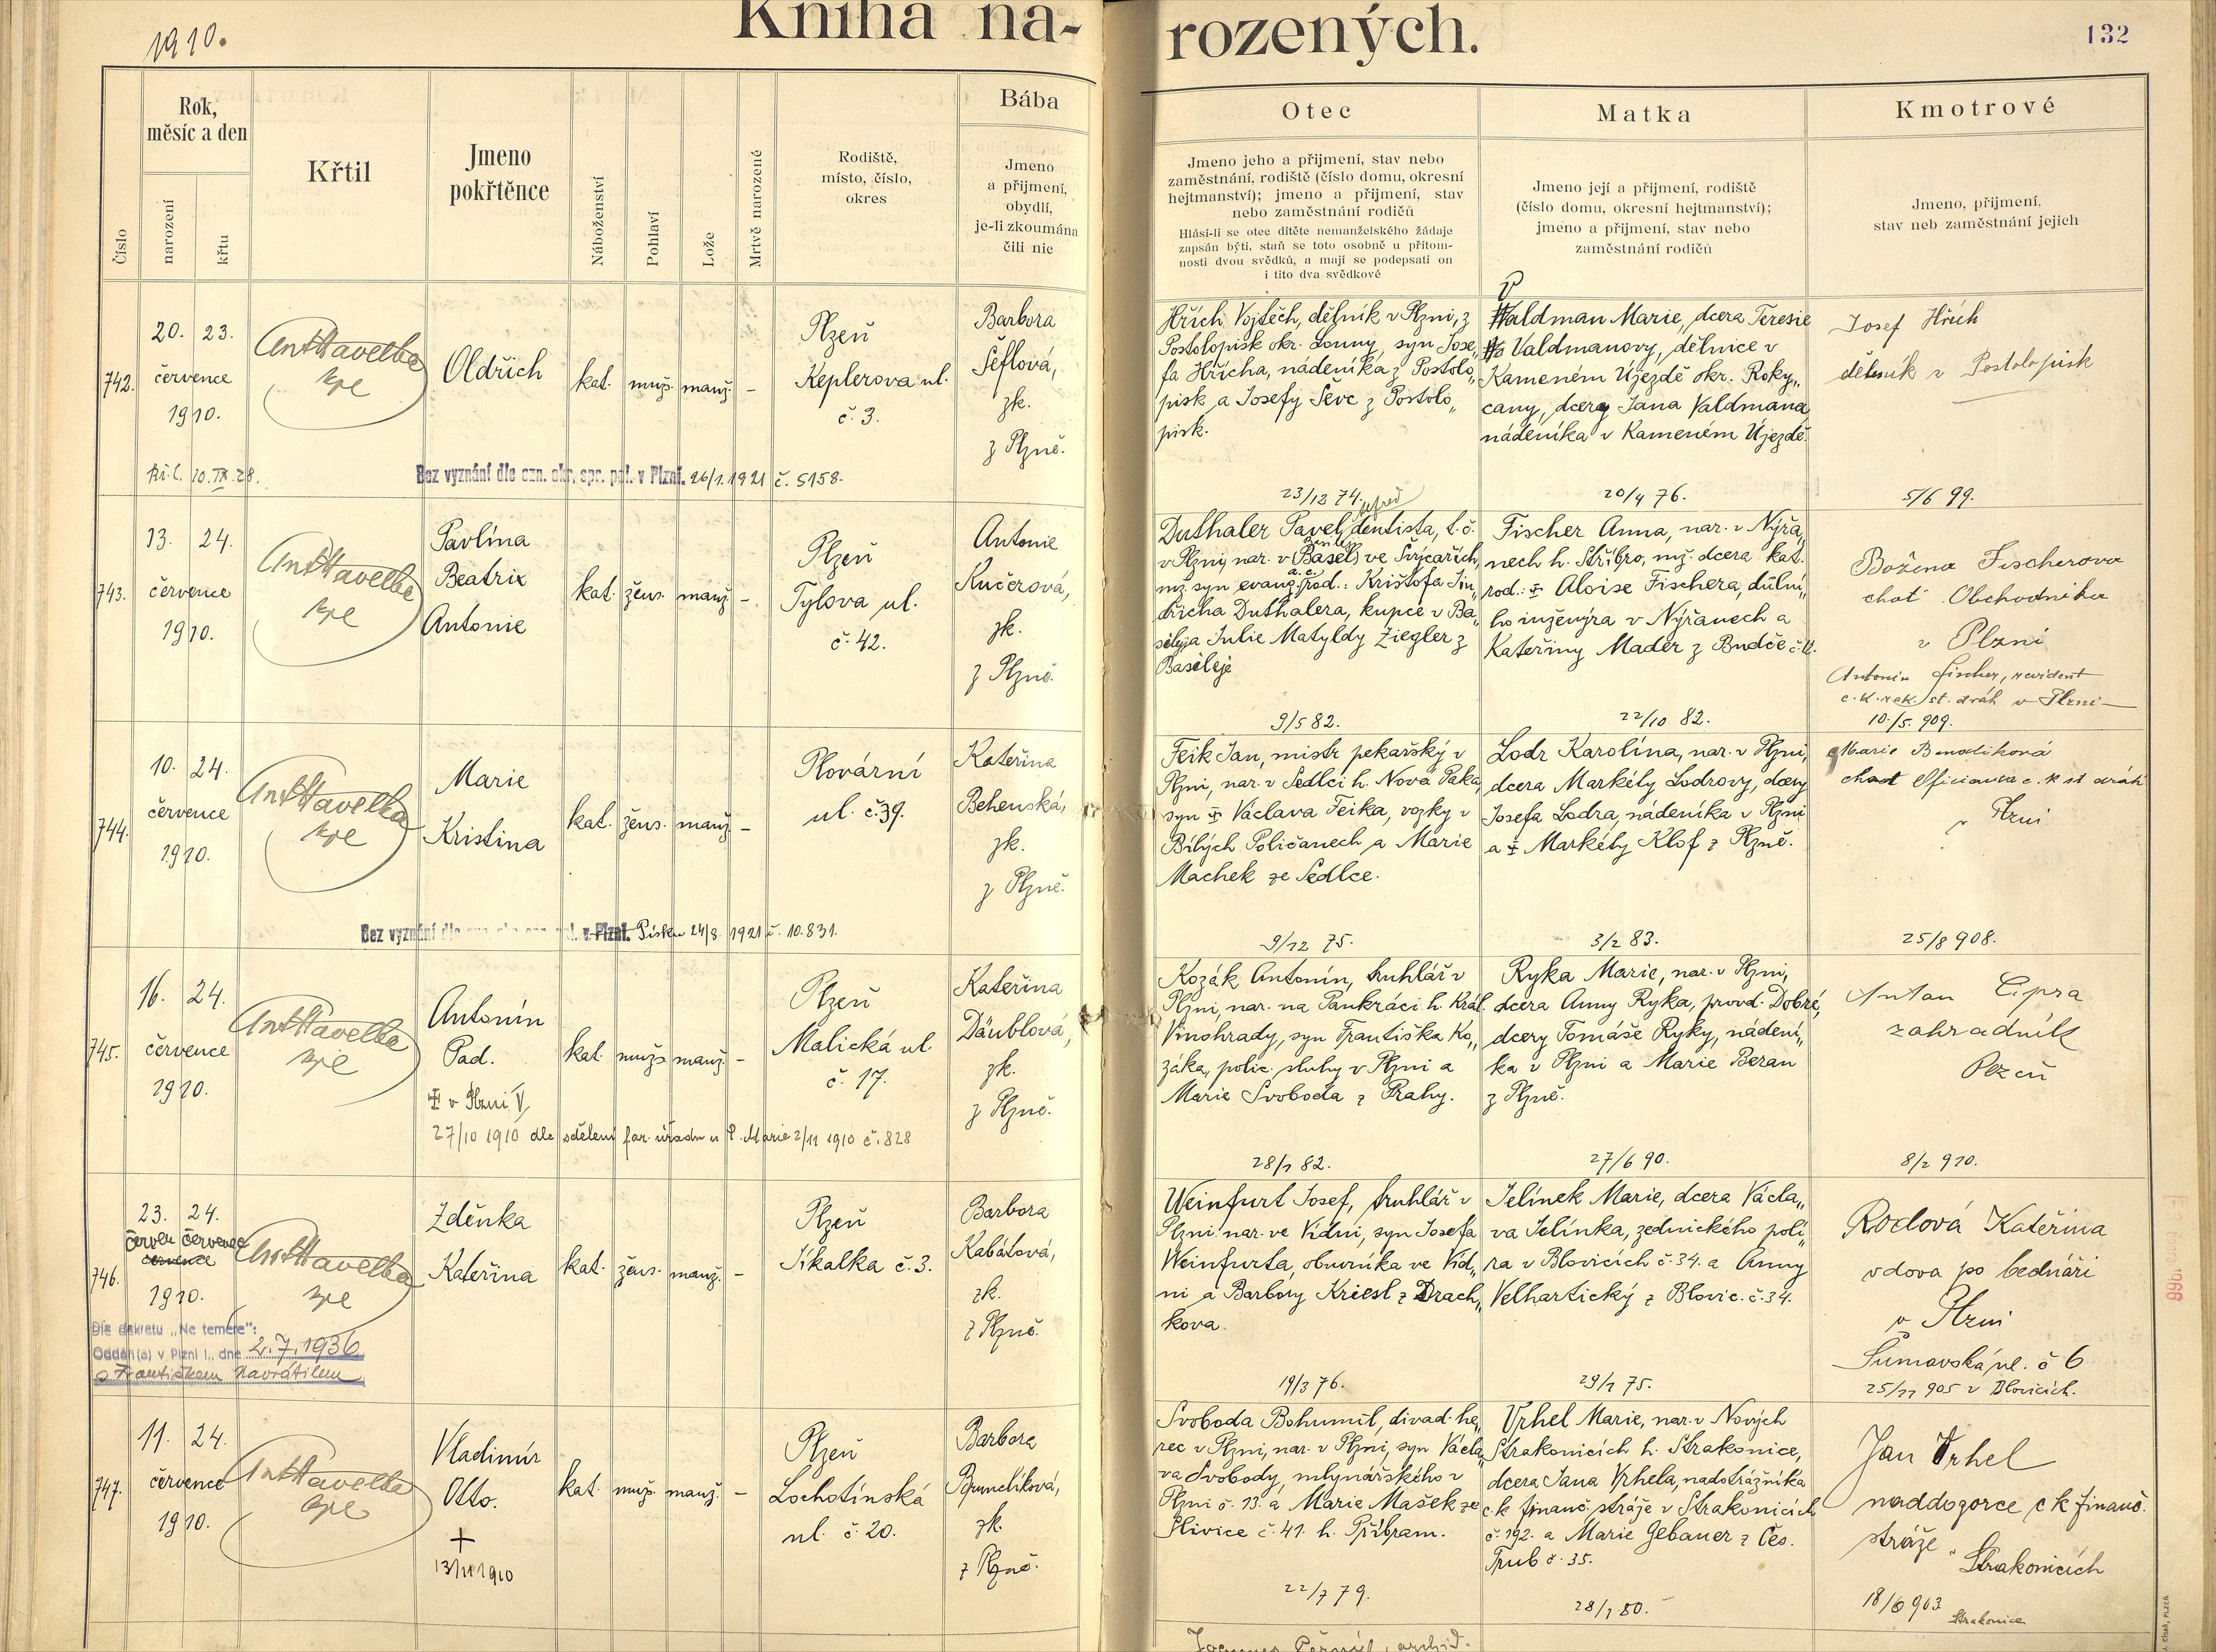 1910.
Kniha na-
rozených.
132
Číslo
Rok,
měsíc a den
narození
křtu
Křtil
Jmeno
pokřtěnce
Náboženství
Pohlaví
Lože
Mrtvě narozené
Rodiště,
místo, číslo,
okres
Bába
Jmeno
a přijmení,
obydlí,
je-li zkoumána
čili nic
Otec
Jmeno jeho a přijmení, stav nebo
zaměstnání, rodiště (číslo domu, okresní
hejtmanství); jmeno a přijmení, stav
nebo zaměstnání rodičů
Hlásí-li se otec dítěte nemanželského žádaje
zapsán býti, staň se toto osobně u přítom-
nosti dvou svědků, a mají se podepsati on
i tito dva svědkové
Matka
Jmeno její a přijmení, rodiště
(číslo domu, okresní hejtmanství);
jmeno a přijmení, stav nebo
zaměstnání rodičů
Kmotrové
Jmeno, přijmení,
stav neb zaměstnání jejich
742.
20. 23.
července
1910.
Ant Havelka
Oldřich
kat. muž. manž. –
Plzeň
Keplerova ul.
č. 3.
Barbora
Šeflová,
zk.
z Plzně.
Hřích Vojtěch, dělník v Plzni, z
Postolopisk okr. Louny, syn Jose„
fa Hřícha, nádeníka z Postolo„
pisk a Josefy Ševc z Postolo„
pisk.
23/12 74.
Valdman Marie, dcera Teresie
Valdmanovy, dělnice v
Kameném Újezdě okr. Roky„
cany, dcery Jana Valdmana
nádeníka v Kameném Újezdě.
20/4 76.
Josef Hřích
dělník v Postolopisk
5/6 99.
10.IX.28.
Bez vyznání dle ozn. okr. spr. pol. v Plzni. 26/1. 1921 č. 5158.
743.
13. 24.
července
1910.
Ant Havelka
Pavlína
Beatrix
Antonie
kat. žens. manž. –
Plzeň
Tylova ul.
č. 42.
Antonie
Kučerová,
zk.
z Plzně.
Duthaler Pavel, dentista, t. č.
v Plzni, nar. v (Basel) ve Švýcařích,
mž. syn evang. a. c. rod.: Krištofa Jin„
dřicha Duthalera, kupce v Ba„
sileji a Julie Matyldy Ziegler z
Basileje
9/5 82.
Fischer Anna, nar. v Nýřa„
nech h. Stříbro, mž. dcera kat.
rod.: Aloise Fischera, důlní„
ho inženýra v Nýřanech a
Kateřiny Mader z Budče č. 12.
22/10 82.
Božena Fischerova
choť Obchodníka
v Plzni
Antonín Fischer, revident
c. k. rak. st. drah v Plzni
10./5. 909.
744.
10. 24.
července
1910.
Ant Havelka
Marie
Kristina
kat. žens. manž. –
Plovární
ul. č. 39.
Kateřina
Behenská,
zk.
z Plzně.
Feik Jan, mistr pekařský v
Plzni, nar. v Sedlci h. Nová Paka,
syn Václava Feika, vozky v
Bílých Poličanech a Marie
Machek ze Sedlce.
9/12 75.
Lodr Karolína, nar. v Plzni,
dcera Markéty Lodrovy, dcery
Josefa Lodra, nádeníka v Plzni
a Markéty Klof z Plzně.
3/2 83.
Marie Benediková
choť Oficianta c. k st dráh
v Plzni
25/8 908.
Bez vyznání dle v Plzni. Písku 24/8 1921 č. 10.831.
745.
16. 24.
července
1910.
Ant Havelka
Antonín
Pad.
kat. muž. manž. –
Plzeň
Malická ul.
č. 17.
Kateřina
Däublová,
zk.
z Plzně.
v Plzni V
27/10 1910 dle sdělení far. úřadu u P. Marie 2/11 1910 č. 828
Kozák Antonín, truhlář v
Plzni, nar. na Pankráci h. Král.
Vinohrady, syn Františka Ko„
záka, polic. sluhy v Plzni a
Marie Svoboda z Prahy.
28/1 82.
Ryka Marie, nar. v Plzni,
dcera Anny Ryka, provd. Dobré,
dcery Tomáše Ryky, nádení„
ka v Plzni a Marie Beran
z Plzně.
27/6 90.
Anton Cipra
zahradník
Plzeň
8/2 910.
746.
23. 24.
červen červenec
července
1910.
Ant Havelka
Zděnka
Kateřina
kat. žens. manž. –
Plzeň
Jikalka č. 3.
Barbora
Kabátová,
zk.
z Plzně.
Dle dekretu „Ne temere":
Oddán(a) v Plzni I., dne 2.7.1936
s Františkem Navrátilem
Weinfurt Josef, truhlář v
Plzni nar. ve Vídni, syn Josefa
Weinfurta, obuvníka ve Víd„
ni a Barbory Kriesl z Drach„
kova.
19/3 76.
Jelínek Marie, dcera Václa„
va Jelínka, zednického polí„
ra v Blovicích č. 34. a Anny
Velhartický z Blovic. č. 34.
29/1 75.
Rodová Kateřina
vdova po bednáři
v Plzni
Šumavská ul. č 6
25/11 905 v Blovicích.
747.
11. 24.
července
1910.
Ant Havelka
Vladimír
Otto.
+
13/11 1910
kat. muž. manž. –
Plzeň
Lochotínská
ul. č. 20.
Barbora
zk.
z Plzně.
Svoboda Bohumil, divad. he„
rec v Plzni, nar. v Plzni, syn Václa„
va Svobody, mlynářského v
Plzni č. 13. a Marie Mašek ze
Slivice č. 41. h. Příbram.
22/7 79.
Vrhel Marie, nar. v Nových
Strakonicích h. Strakonice,
dcera Jana Vrhela, nadstrážníka
c. k. finanč. stráže v Strakonicích
č. 192. a Marie Gebauer z Čes.
Trub č. 35.
28/1 80.
Jan Vrhel
naddozorce c k finanč.
stráže v Strakonicích
18/6 903
Strakonice